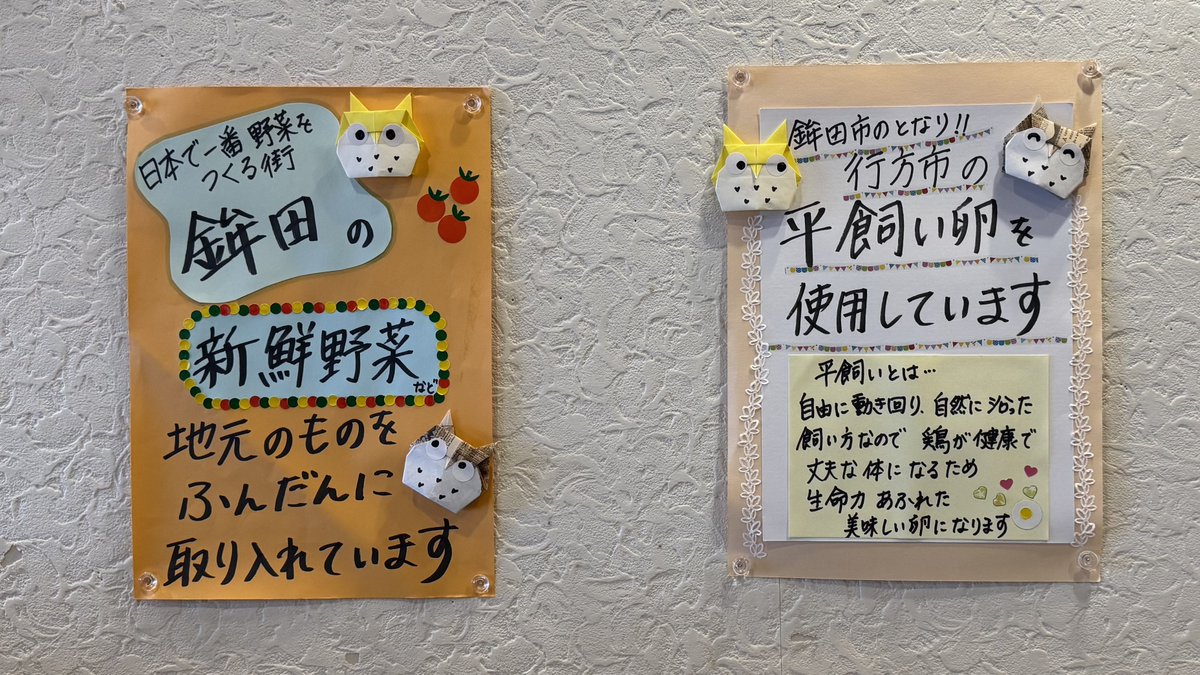 日本で一番野菜を
つくる街
鉾田の
新鮮野菜など
地元のものを
ふんだんに
取り入れています
鉾田市のとなり!!
行方市の
平飼い卵を
使用しています
平飼いとは…
自由に動き回り、自然に沿った
飼い方なので 鶏が健康で
丈夫な体になるため
生命力あふれた
美味しい卵になります